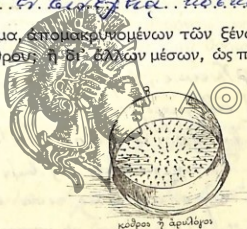 μα, απομακρυνομένων τῶν ξένω
θρον; ἢ δι' ἄλλων μέσων, ὡς π
κόθρος ἢ ἀρυλόγος